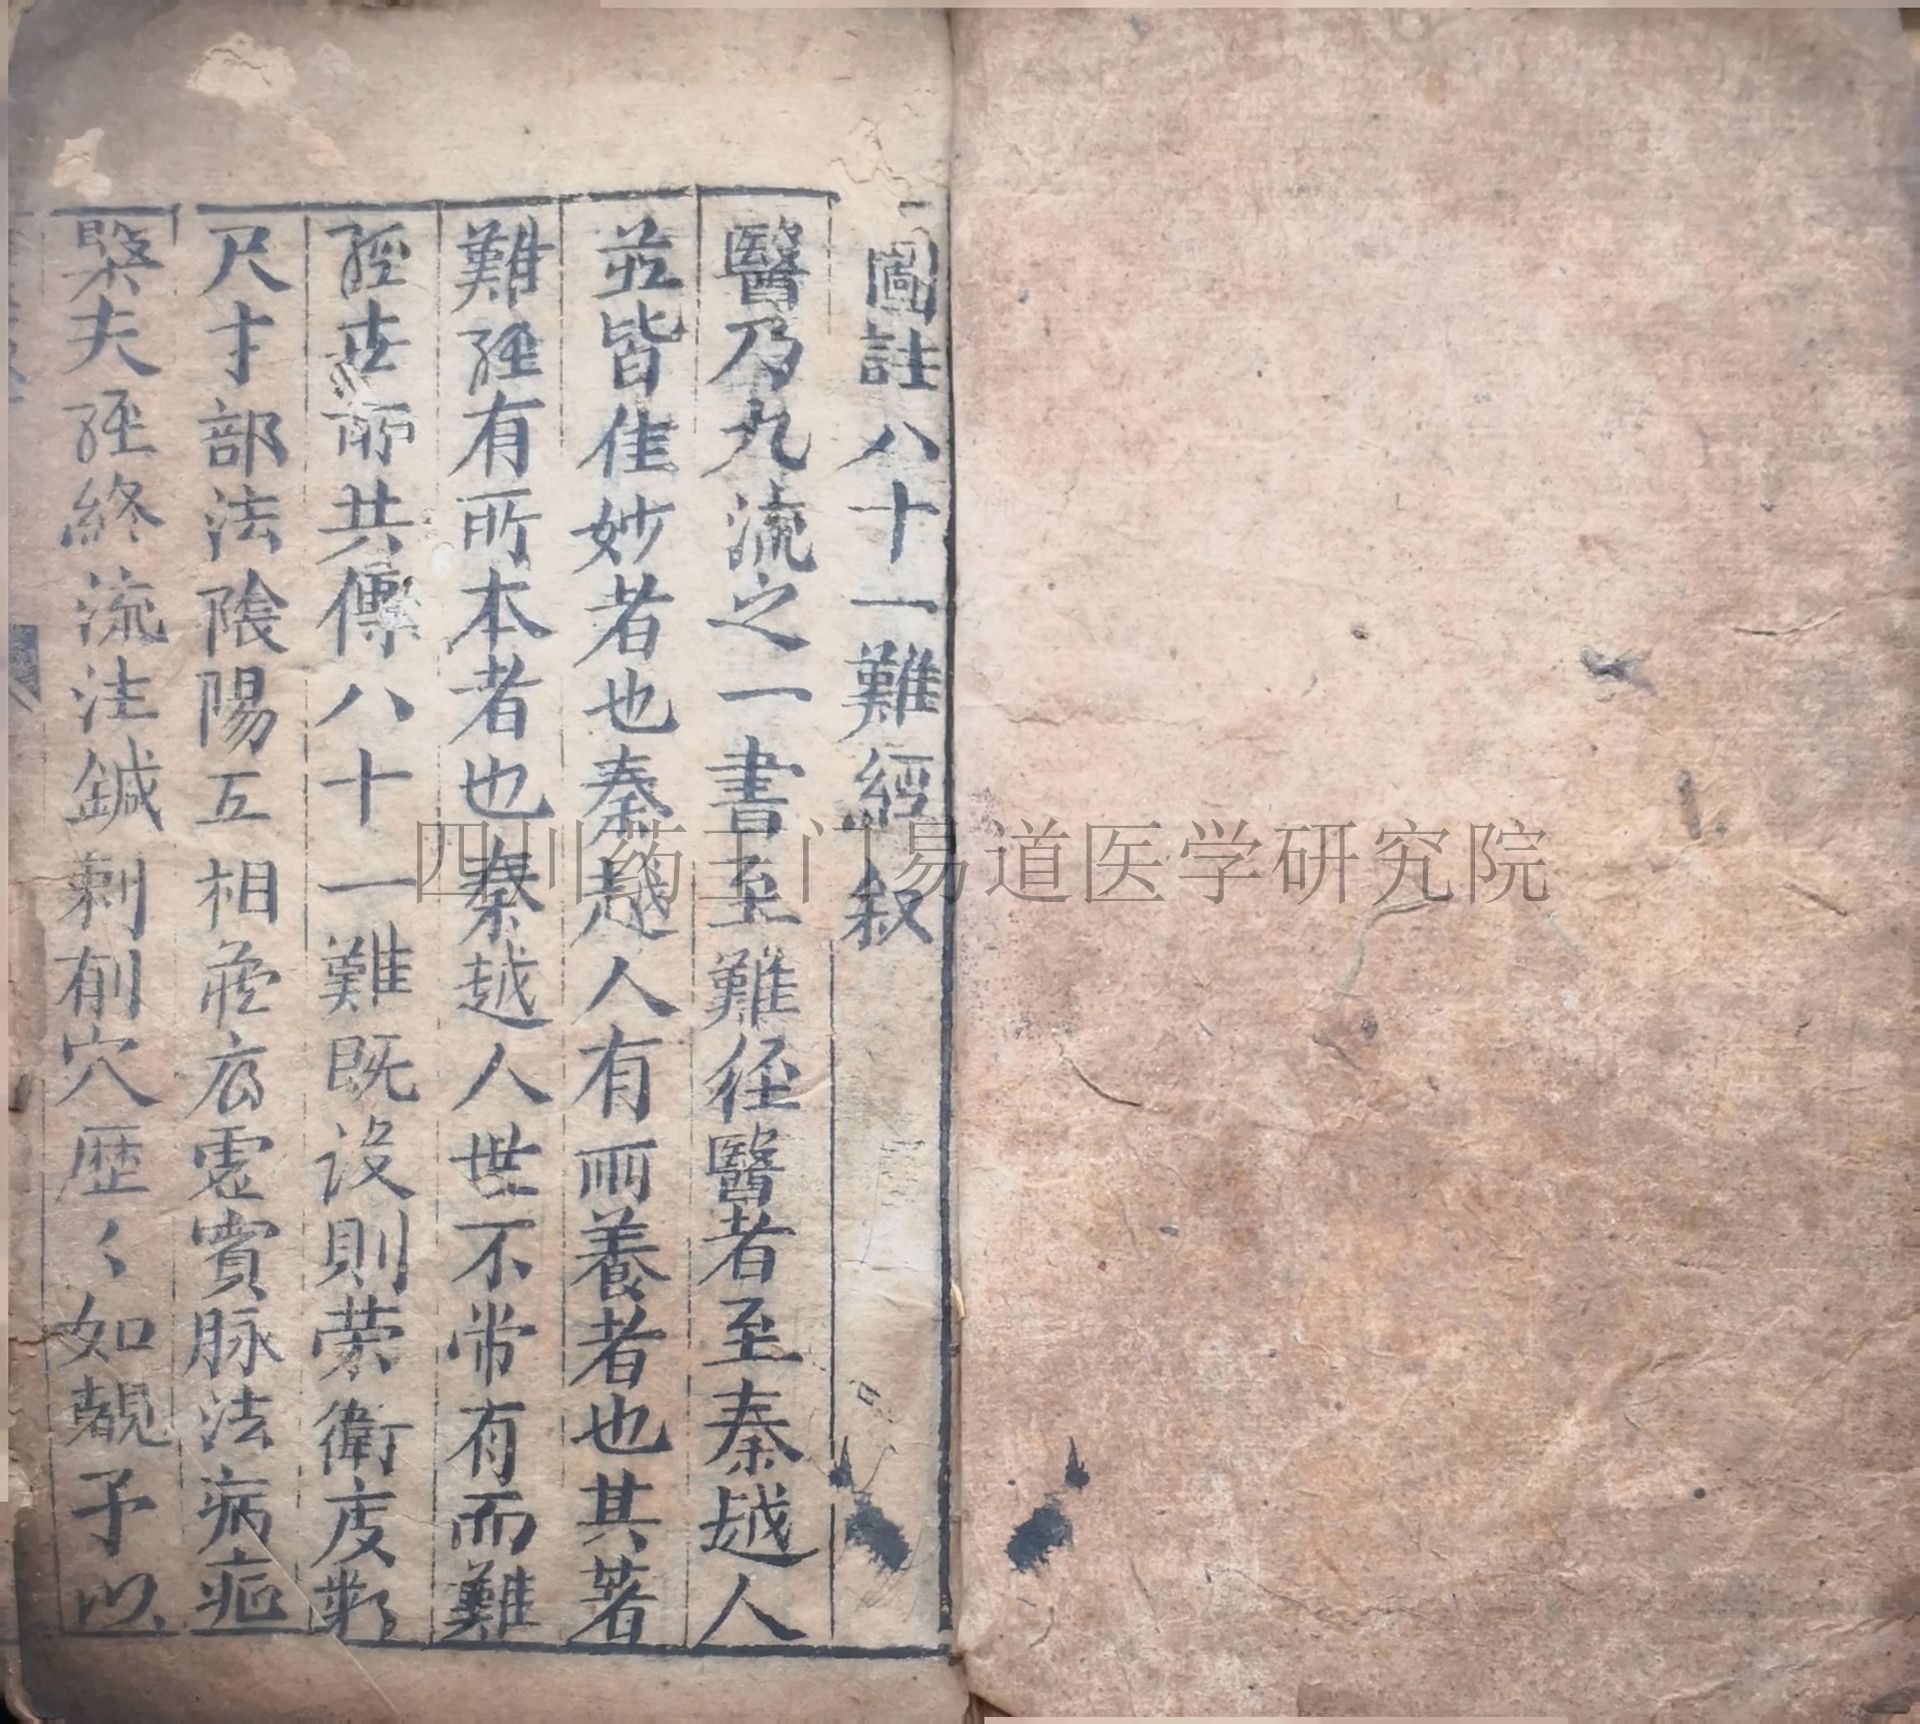 圖註八十一難經叙
醫乃九流之一書至難径醫者至秦越人
並皆佳妙者也秦越人有所養者也其著
難經有所本者也秦越人世不常有而難
經世所共傳八十一難既設則荣衛度數
尺寸部法隂陽五相虛實脉法病症
夫經終流注鍼刺俞穴歴々如覩予以
四川药王门易道医学研究院